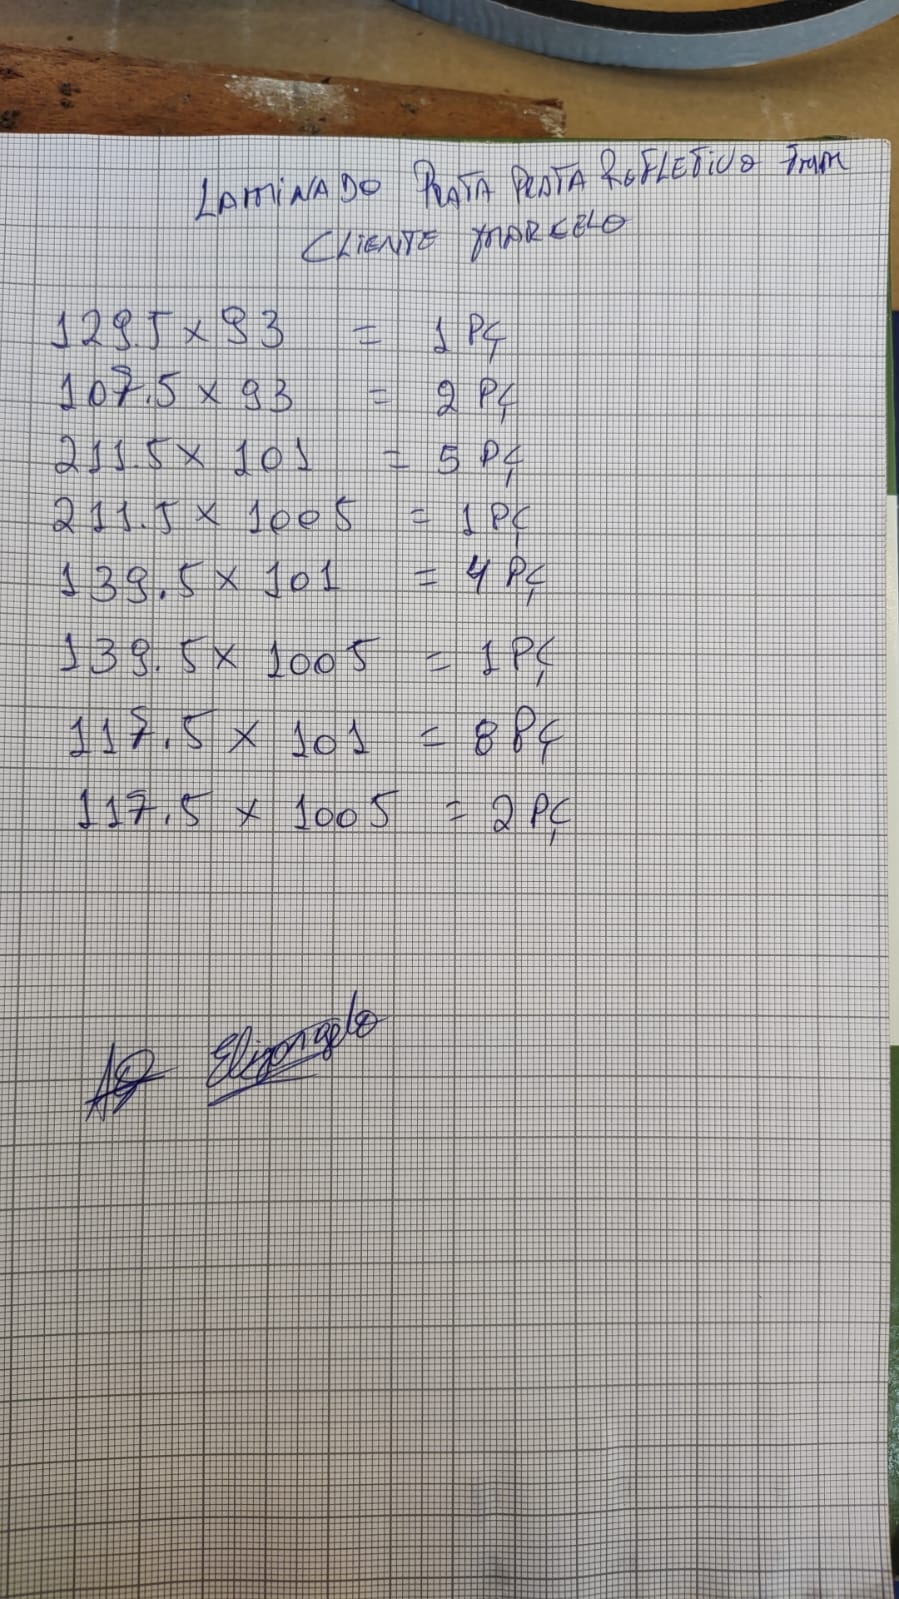 LAMINADO PRATA PRATA REFLETIVO 7mm
CLIENTE MARCELO
129.5 x 93 = 1 PÇ
107.5 x 93 = 2 PÇ
211.5 x 101 = 5 PÇ
211.5 x 1005 = 1 PÇ
139.5 x 101 = 4 PÇ
139.5 x 1005 = 1 PÇ
117.5 x 101 = 8 PÇ
117.5 x 1005 = 2 PÇ